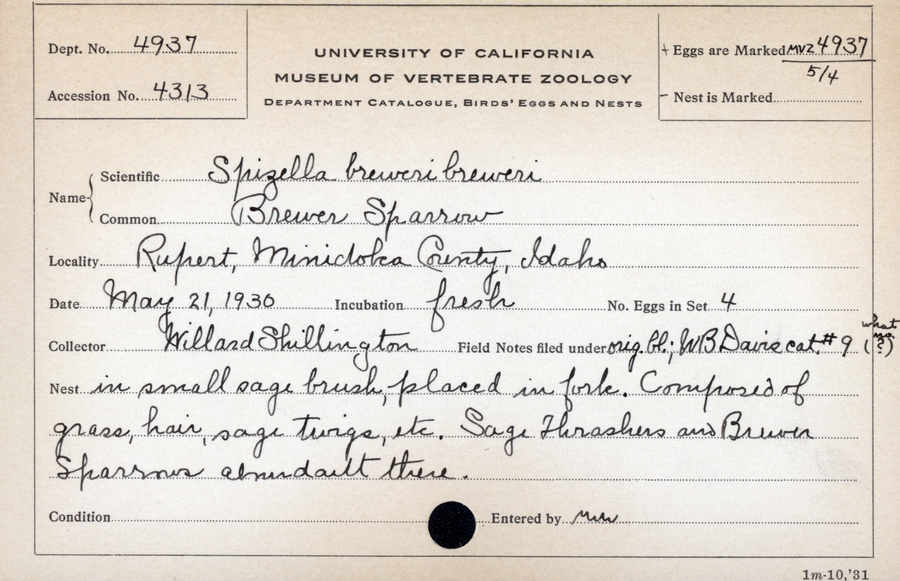 Dept. No. 4937
Accession No. 4313
UNIVERSITY OF CALIFORNIA
MUSEUM OF VERTEBRATE ZOOLOGY
DEPARTMENT CATALOGUE, BIRDS' EGGS AND NESTS
+ Eggs are Marked MVZ 4937
5/4
– Nest is Marked
Name { Scientific Spizella breweri breweri
Common Brewer Sparrow
Locality Rupert, Minidoka County, Idaho
Date May 21, 1930 Incubation fresh No. Eggs in Set 4
Collector Willard Shillington Field Notes filed under orig. bl.; WB Davis cat. # 9 (what no.?)
Nest in small sage brush, placed in fork. Composed of
grass, hair, sage twigs, etc. Sage Thrashers and Brewer
Sparrows abundant there.
Condition Entered by
1m-10,'31